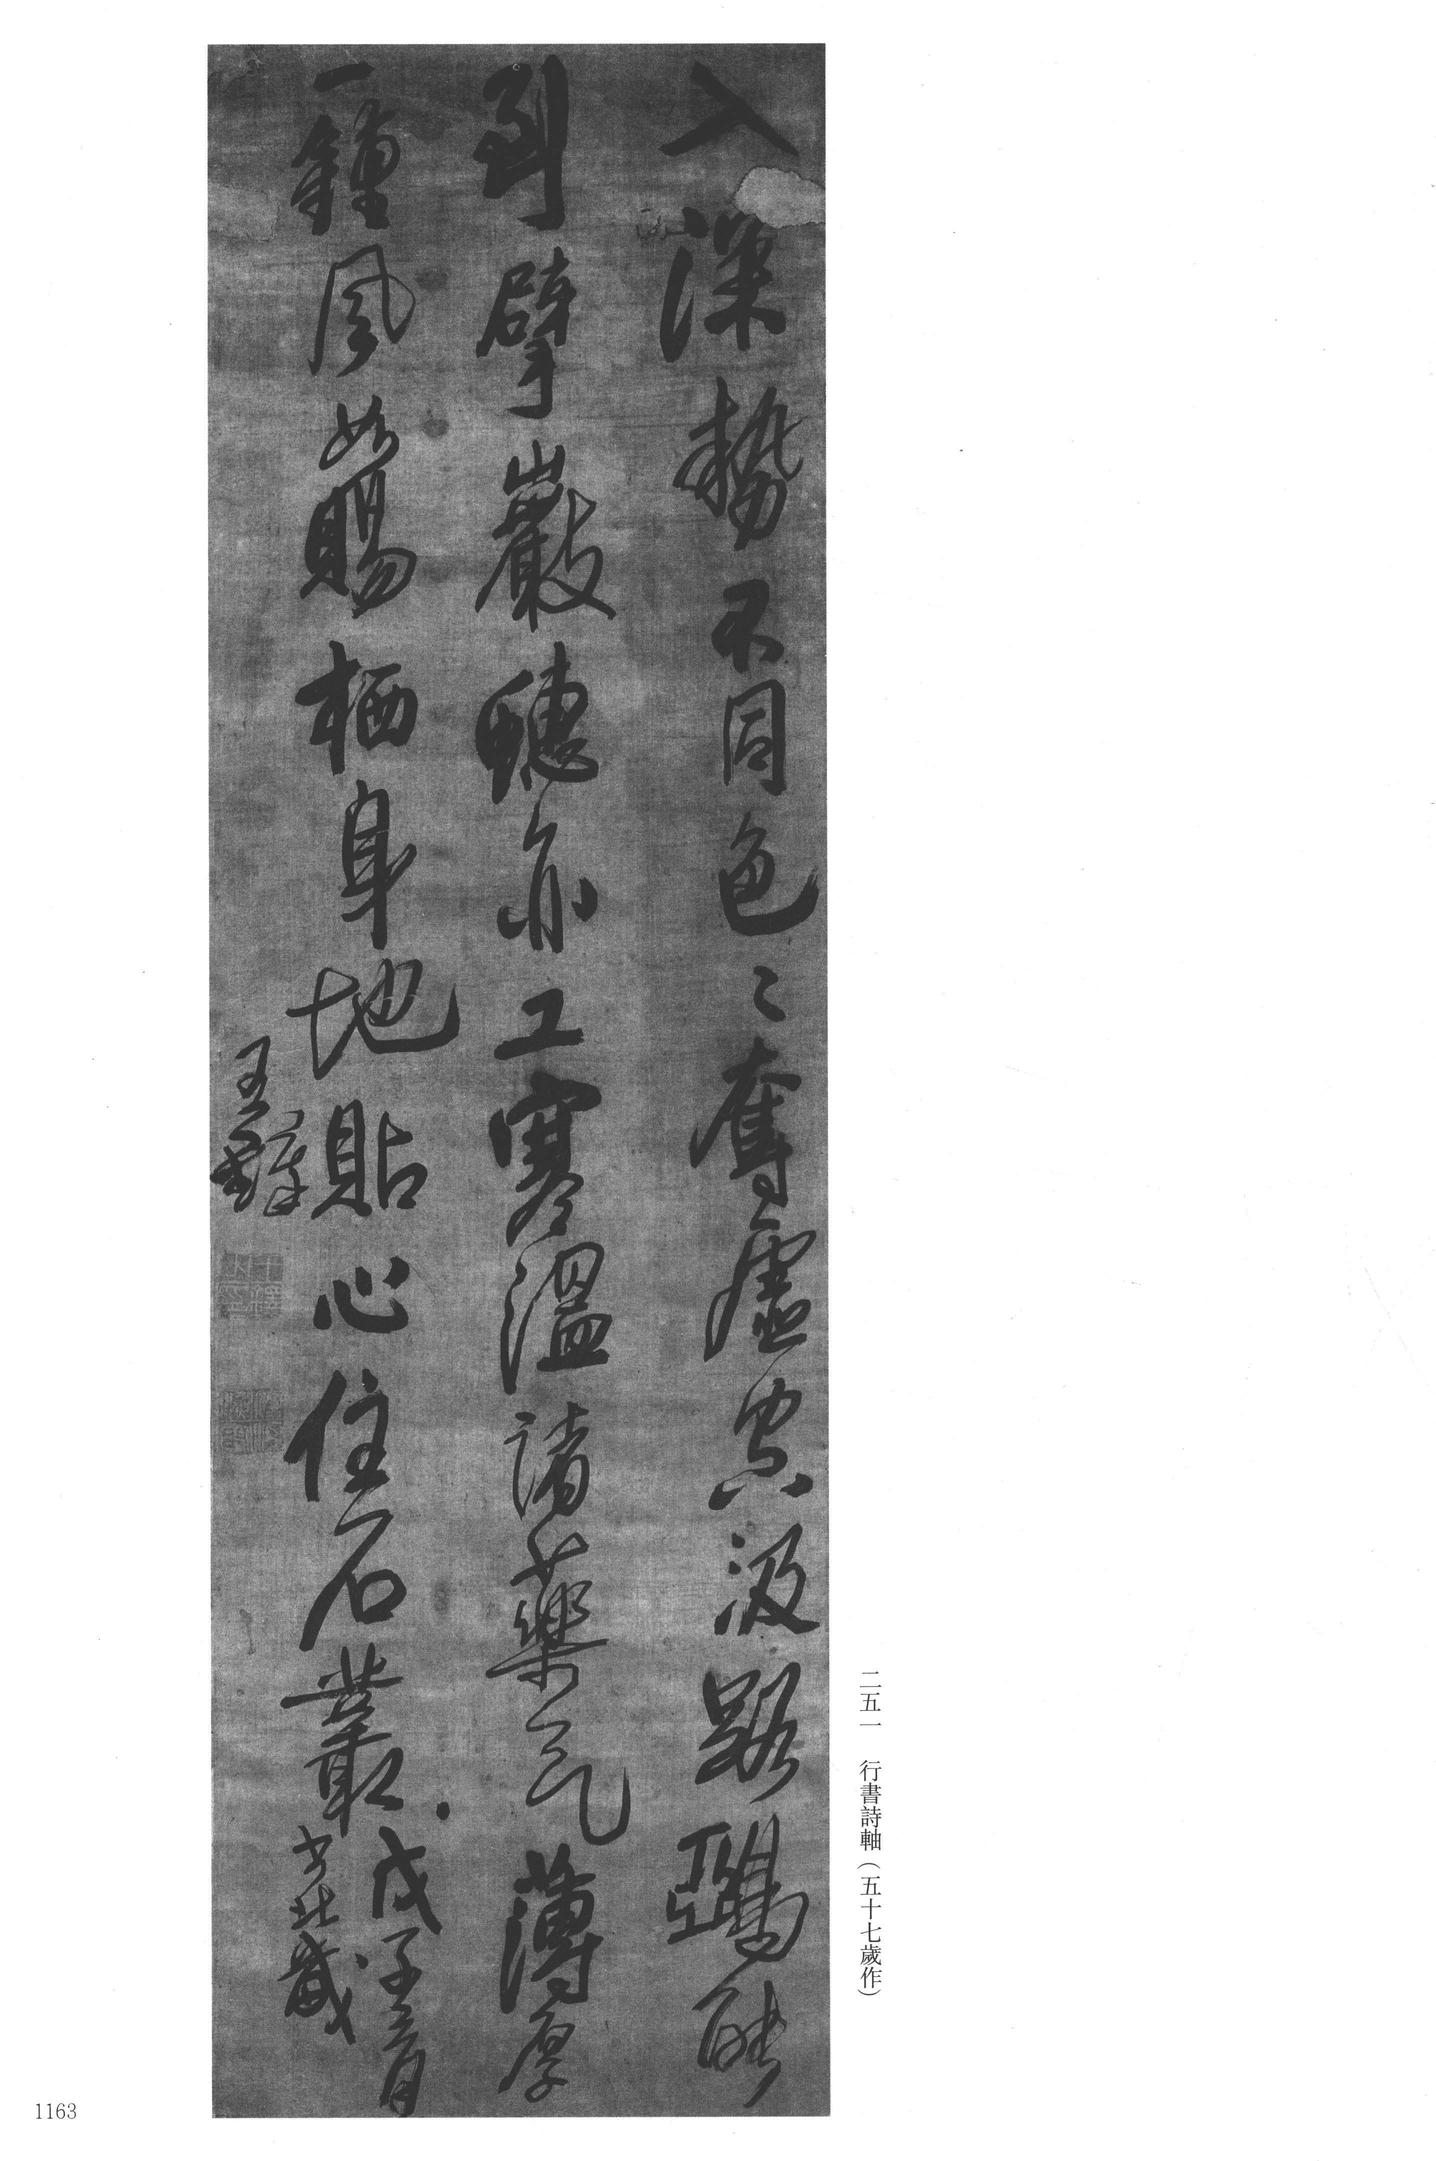 入深勢不同色〻奪虛空汲路鵶能
到擘巖聽亦工寒溫諸藥气薄厚
一鐘風如賜栖身地貼心住石叢
戊子月
書北畿
王鐸
二五一 行書詩軸（五十七歲作）
1163